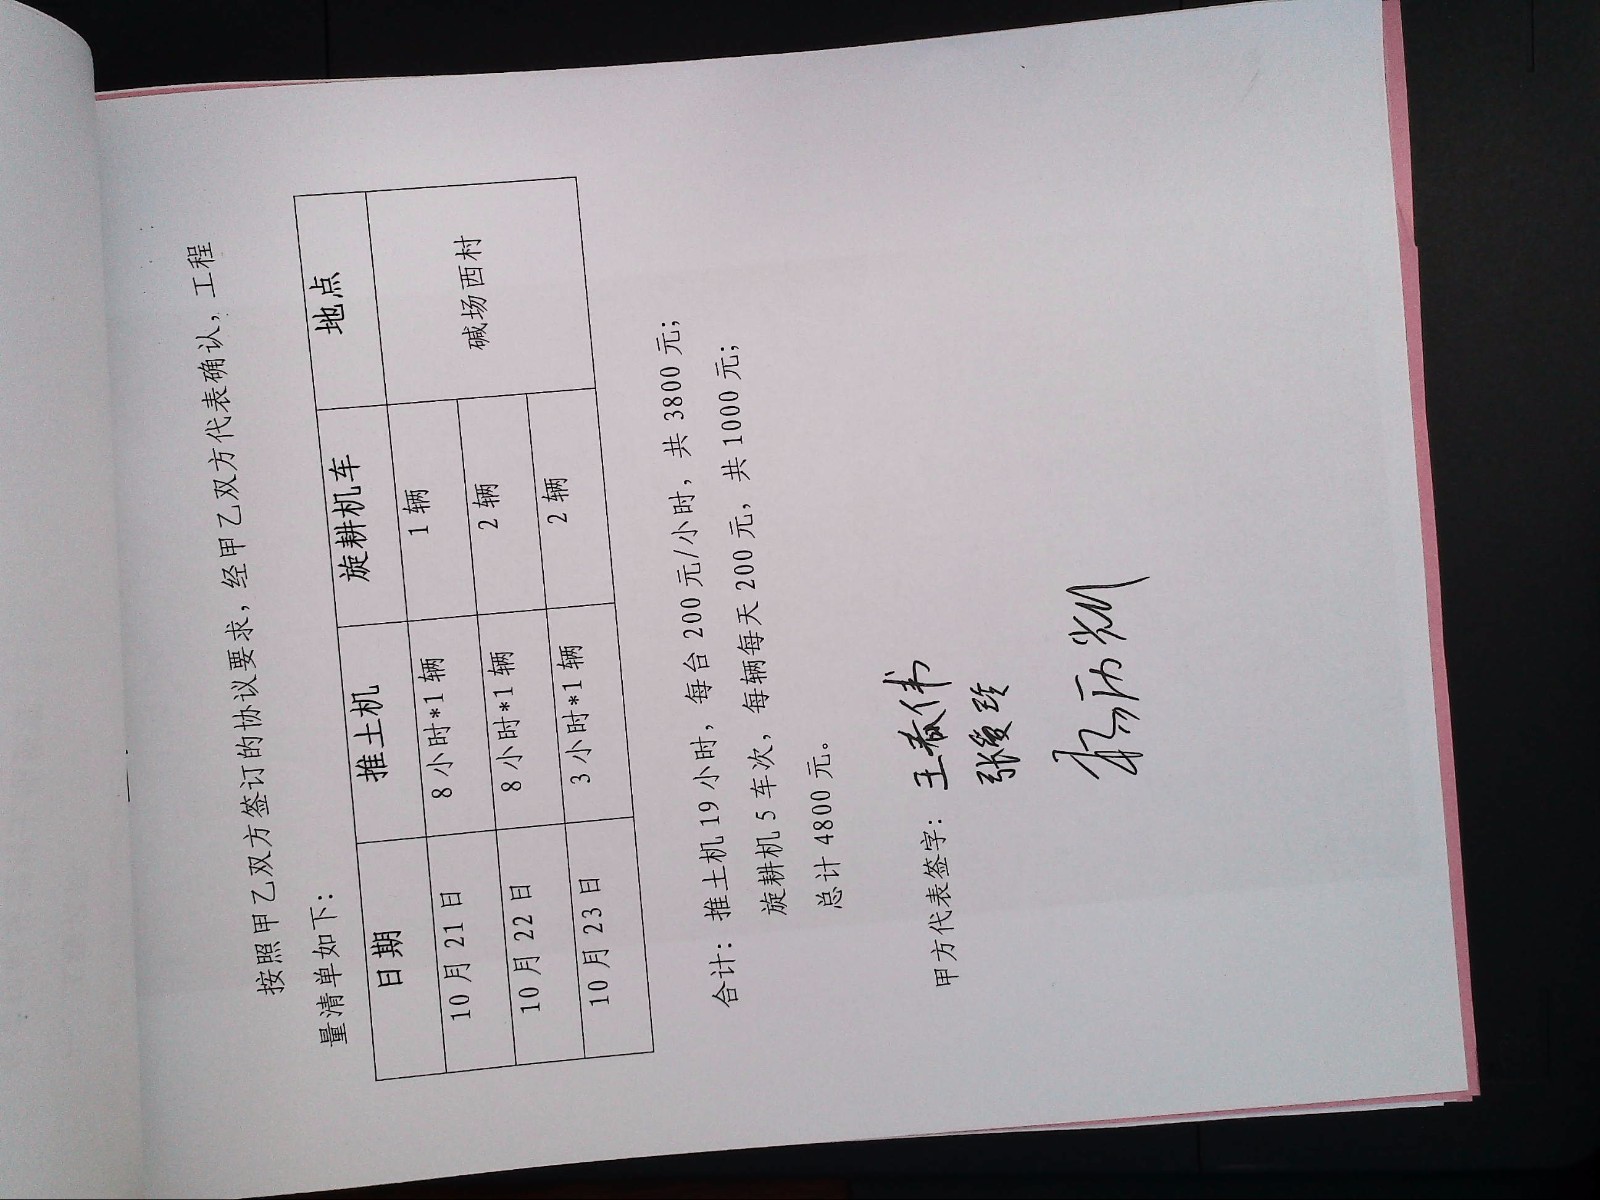 按照甲乙双方签订的协议要求，经甲乙双方代表确认，工程
量清单如下：
日期 推土机 旋耕机车 地点
10月21日 8小时*1辆 1辆 碱场西村
10月22日 8小时*1辆 2辆
10月23日 3小时*1辆 2辆
合计：推土机19小时，每台200元/小时，共3800元；
旋耕机5车次，每辆每天200元，共1000元；
总计4800元。
甲方代表签字：王春伟
张爱玲